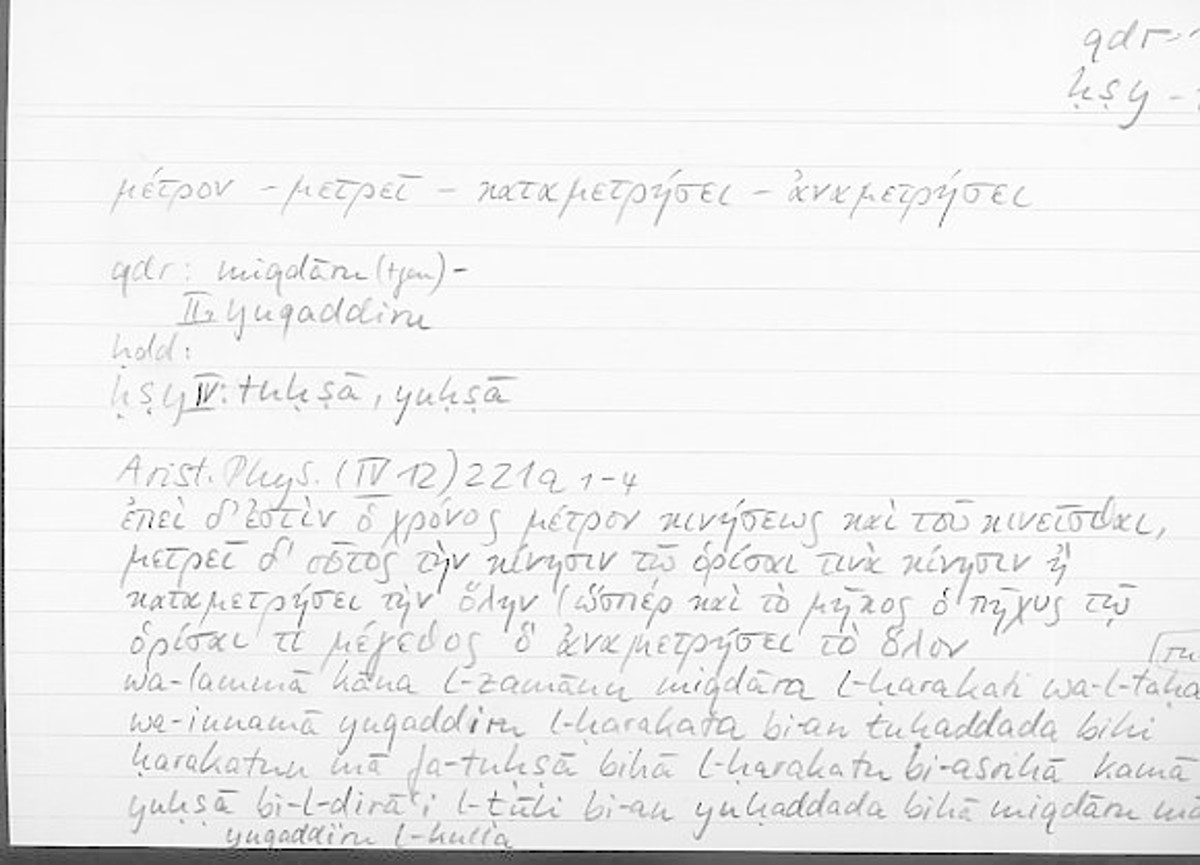 qdr-
ḥṣy -
μέτρον - μετρεῖ - καταμετρήσει - ἀναμετρήσει
qdr: miqdāru (+gen) -
II, yuqaddiru
ḥdd:
ḥṣy IV: tuḥṣā, yuḥṣā
Arist. Phys. (IV 12) 221a 1-4
ἐπεὶ δ' ἐστὶν ὁ χρόνος μέτρον κινήσεως καὶ τοῦ κινεῖσθαι,
μετρεῖ δ' οὗτος τὴν κίνησιν τῷ ὁρίσαι τινὰ κίνησιν ἣ
καταμετρήσει τὴν ὅλην (ὥσπερ καὶ τὸ μῆκος ὁ πῆχυς τῷ
ὁρίσαι τι μέγεθος ὃ ἀναμετρήσει τὸ ὅλον
wa-lammā kāna l-zamānu miqdāra l-ḥarakati wa-l-taḥa
wa-innamā yuqaddiru l-ḥarakata bi-an tuḥaddada bihi
ḥarakatun mā fa-tuḥṣā bihā l-ḥarakatu bi-asrihā kamā
yuḥṣā bi-l-dirāʿi l-ṭūli bi-an yuḥaddada bihā miqdāru
yuqaddiru l-kulla